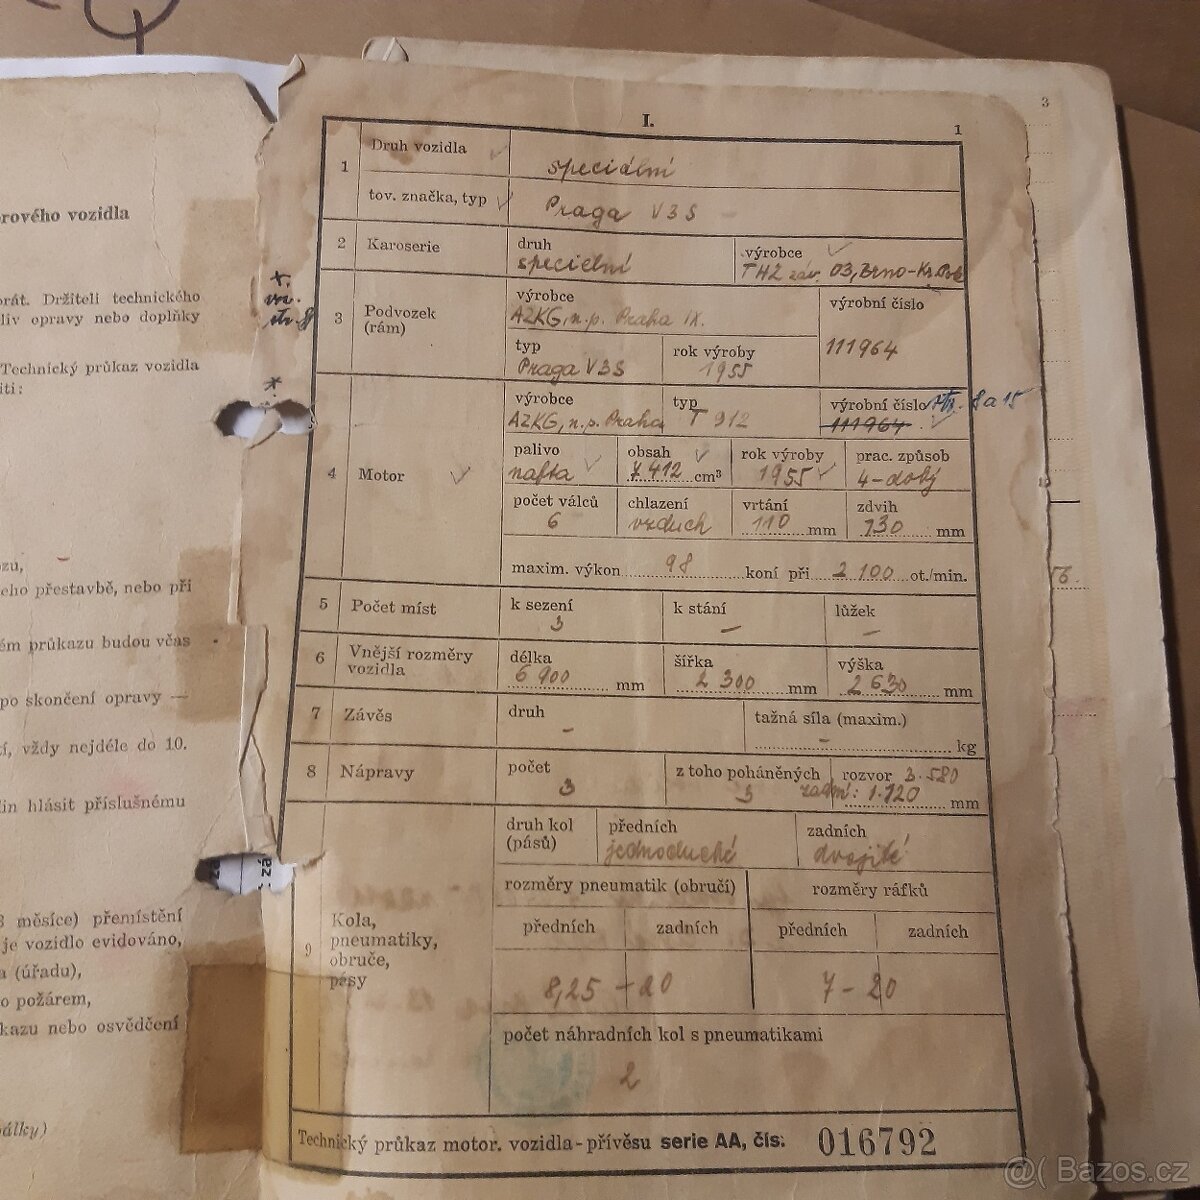 3
orového vozidla
orát. Držiteli technického
liv opravy nebo doplňky
Technický průkaz vozidla
iti:
ozu,
eho přestavbě, nebo při
ém průkazu budou včas
po skončení opravy —
tí, vždy nejdéle do 10.
lin hlásit příslušnému
3 měsíce) přemístění
je vozidlo evidováno,
a (úřadu),
o požárem,
kazu nebo osvědčení
álky)
I.
1
1 Druh vozidla speciální
tov. značka, typ Praga V3S –
2 Karoserie druh výrobce
specielní THZ záv. 03, Brno-Kr. Pole
3 Podvozek (rám) výrobce výrobní číslo
AZKG, n.p. Praha IX.
111964
typ rok výroby
Praga V3S 1955
4 Motor výrobce typ výrobní číslo str. 8 a 15
AZKG, n.p. Praha T 912 111964
palivo obsah rok výroby prac. způsob
nafta 7412 cm³ 1955 4-dobý
počet válců chlazení vrtání zdvih
6 vzduch 110 mm 130 mm
maxim. výkon 98 koní při 2 100 ot./min.
5 Počet míst k sezení k stání lůžek
3 – –
6 Vnější rozměry vozidla délka šířka výška
6 900 mm 2 300 mm 2 630 mm
7 Závěs druh tažná síla (maxim.)
– – kg
8 Nápravy počet z toho poháněných rozvor 3.580
3 3 zadní: 1.120 mm
9 Kola, pneumatiky, obruče, pásy
druh kol (pásů) předních zadních
jednoduché dvojité
rozměry pneumatik (obručí) rozměry ráfků
předních zadních předních zadních
8,25 – 20 7 – 20
počet náhradních kol s pneumatikami
2
Technický průkaz motor. vozidla - přívěsu serie AA, čís. 016792
Bazos.cz